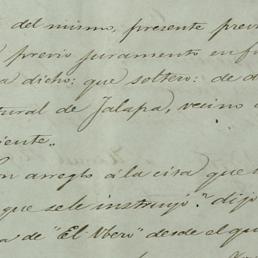 del mismo, presente previ
previo juramento en for
a dicho: que soltero: de d
tural de Jalapa, vecino d
iente."
on arreglo á la cita que
que se le instruyó." dijo
a de "El Obero" desde el qu